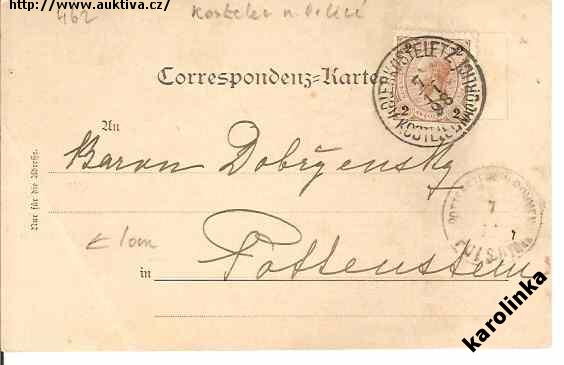 http://www.auktiva.cz/
462
Kostelec n. Orlicí
Correspondenz-Karte
2 2
An
Baron Dobřensky
Nur für die Adresse.
lom
in Pottenstein
karolinka